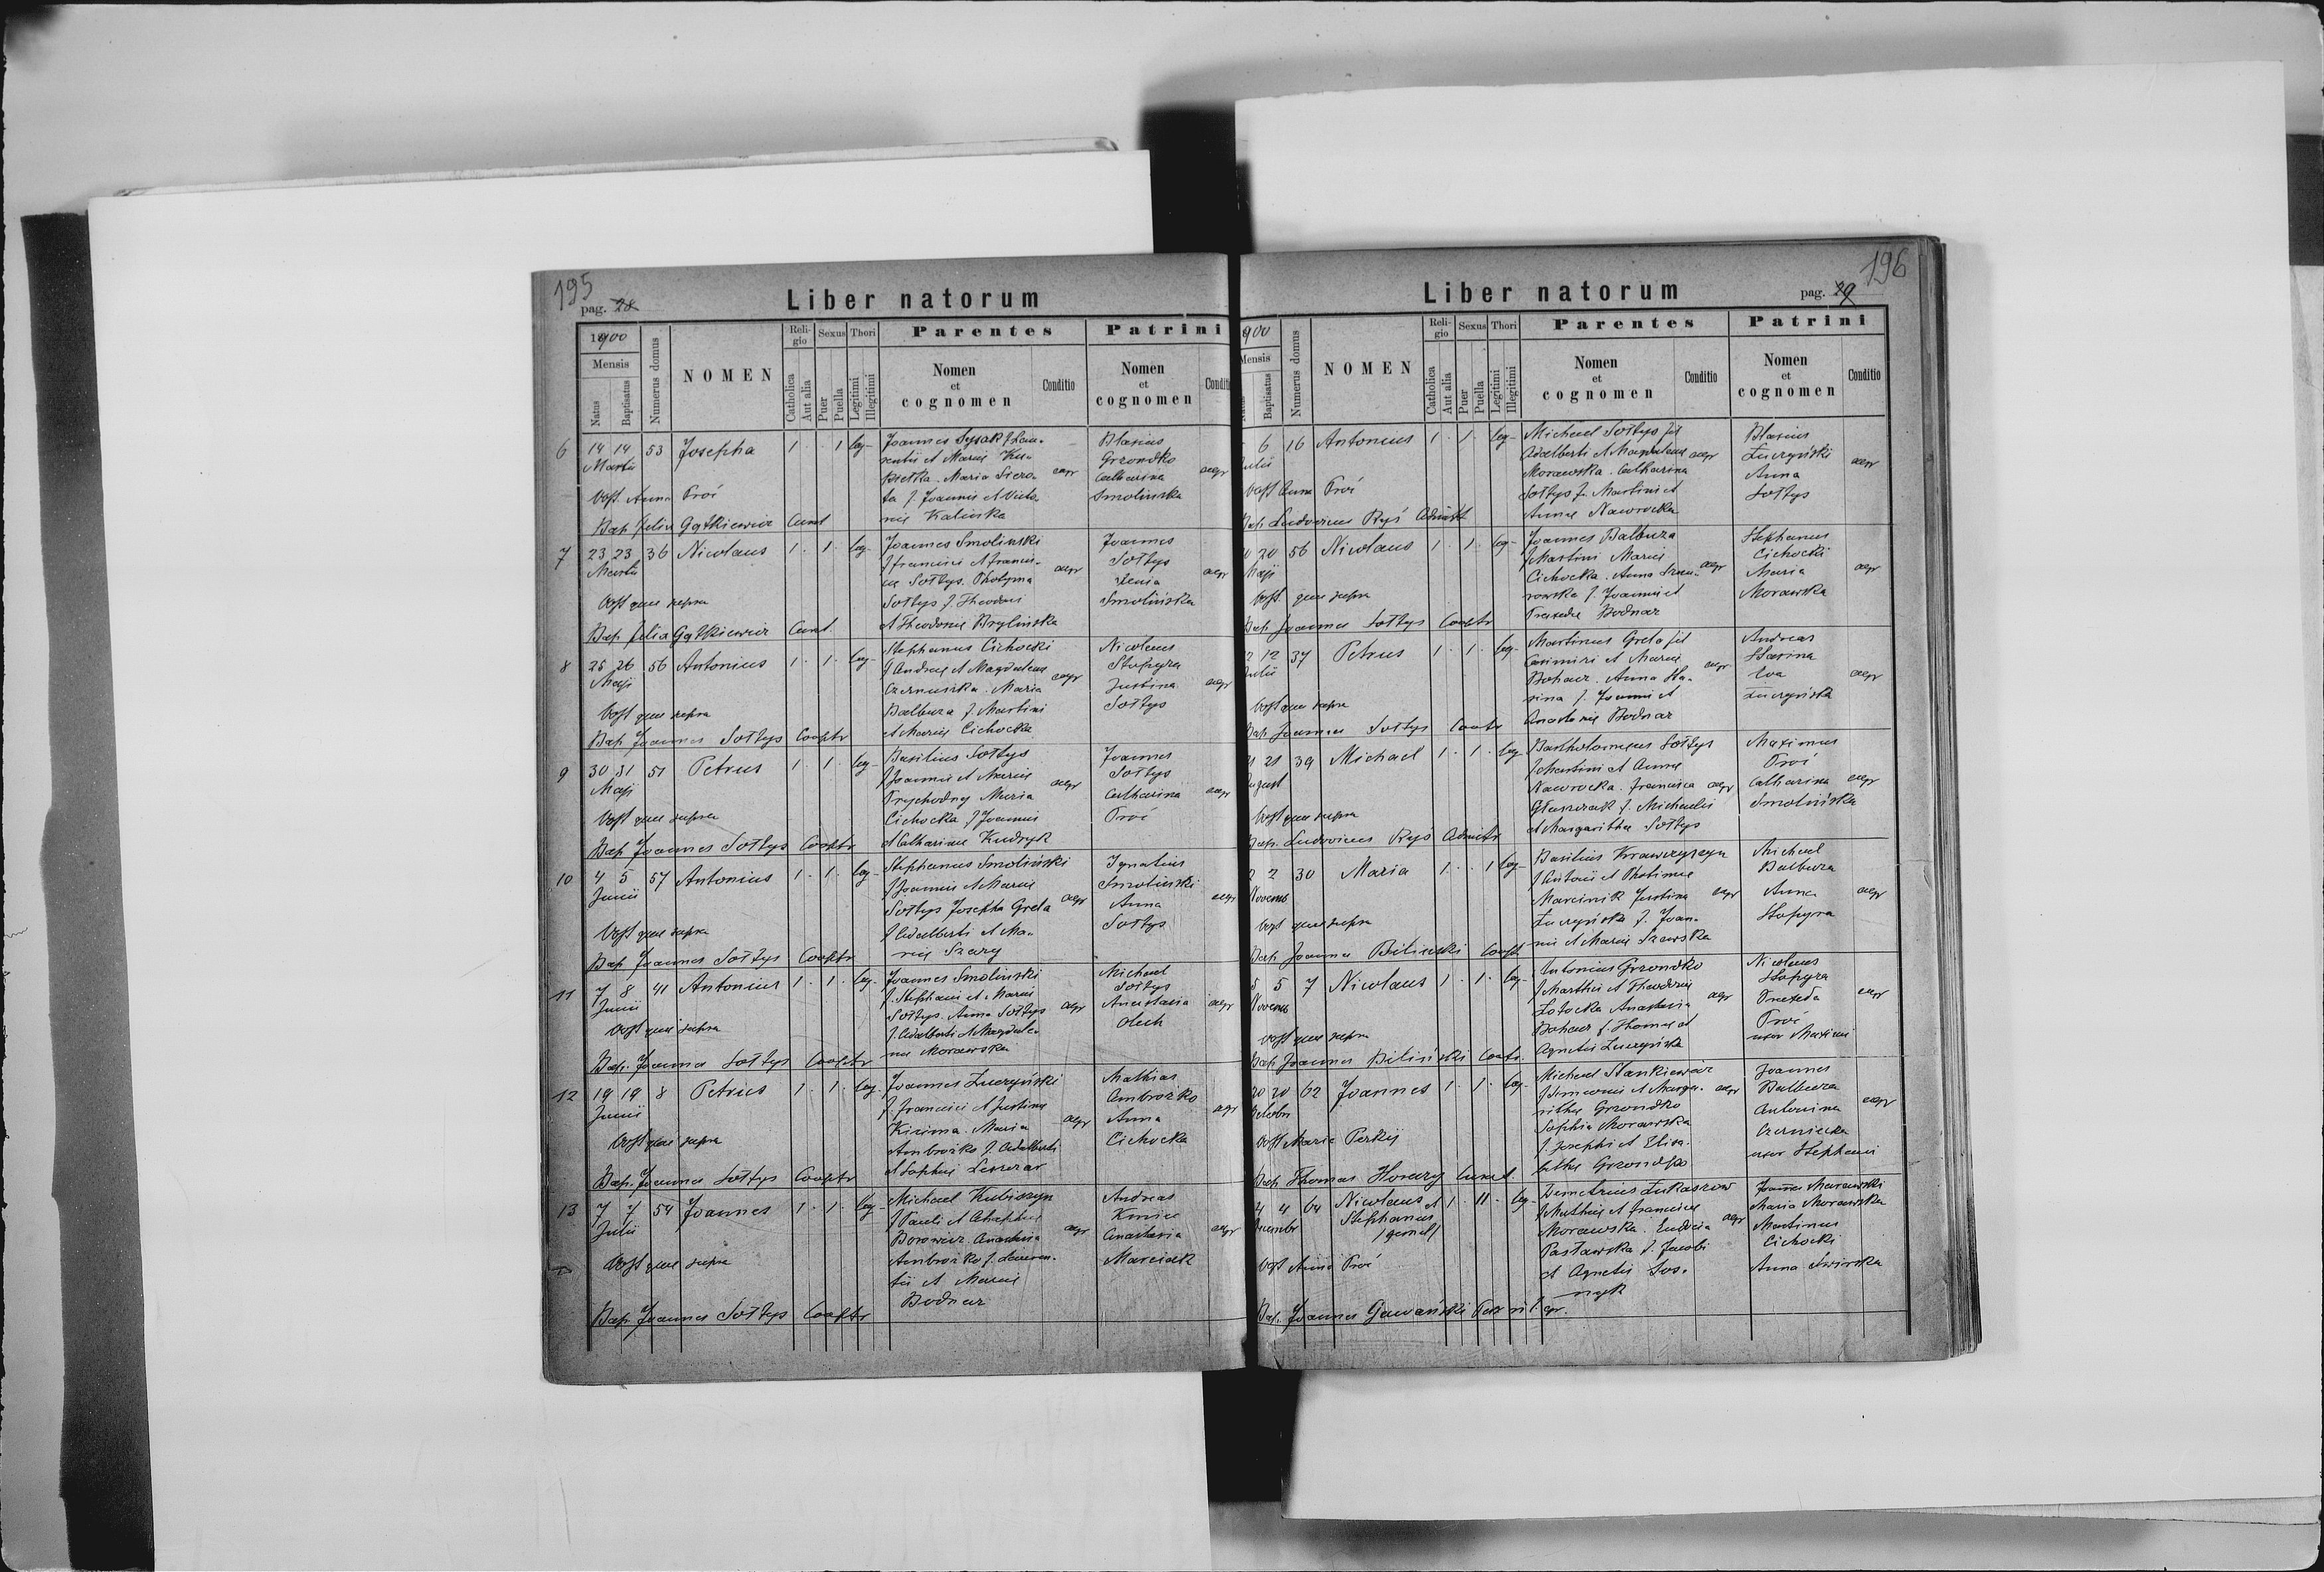 195
pag. 28
Liber natorum
1900
Mensis
Natus
Baptisatus
Numerus domus
NOMEN
Religio
Catholica
Aut alia
Sexus
Puer
Puella
Thori
Legitimi
Illegitimi
Parentes
Nomen
et
cognomen
Conditio
Patrini
Nomen
et
cognomen
6 14 14 53 Josepha 1 . . 1 leg
Martii
Obst. Anna Proć
Bap. Felix Gątkiewicz Curat
Joannes Sysak f. Lau-
rentii et Mariae Ku-
Maria Siero-
ta f. Joannis et Victo
riae Kalinska
agr
Blasius
Grzondko
Catharina
Smolinska
agr
7 23 23 36 Nicolaus 1 . 1 . leg
Martii
Obst quae supra
Bap. Felix Gątkiewicz Curat.
Joannes Smolinski
f francisci et francis-
cae Sołtys. Photyna
Sołtys f. Theodori
et Theodorae Brylinska
agr
Joannes
Sołtys
Xenia
Smolińska
agr
8 25 26 56 Antonius 1 . 1 . leg
Maji
Obst quae supra
Bap Joannes Sołtys Cooptr
Stephanus Cichocki
f Andreae et Magdalenae
Czernuszka. Maria
Balbuza f Martini
et Mariae Cichocka
agr
Nicolaus
Stopyra
Justina
Sołtys
agr
9 30 31 51 Petrus 1 . 1 . leg
Maji
Obst quae supra
Bap Joannes Sołtys Cooptr
Basilius Sołtys
f Joannis et Mariae
Prychodny Maria
Cichocka f Joannis
et Catharinae Kudryk
agr
Joannes
Sołtys
Catharina
Proć
agr
10 4 5 57 Antonius 1 . 1 . leg
Junii
Obst quae supra
Bap Joannes Sołtys Cooptr
Stephanus Smoliński
f Joannis et Mariae
Sołtys Josepha Greta
f Adalberti et Ma-
riae Szary
agr
Ignatius
Smolinski
Anna
Sołtys
agr
11 7 8 41 Antonius 1 . 1 . leg
Junii
Obst quae supra
Bap. Joannes Sołtys Cooptr
Joannes Smolinski
f. Stephani et Mariae
Sołtys. Anna Sołtys
f. Adalberti et Magdale-
nae Morawska
agr
Michael
Sołtys
Anastasia
Olech
agr
12 19 19 8 Petrus 1 . 1 . leg
Junii
Obst quae supra
Bap. Joannes Sołtys Cooptr
Joannes Zuczyński
f. francisci et Justinae
Maria
Ambrożko f. Adalberti
et Sophiae
agr
Mathias
Ambrożko
Anna
Cichocka
agr
13 7 7 54 Joannes 1 . 1 . leg
Julii
Obst quae supra
Bap. Joannes Sołtys Cooptr
Michael Kubiszyn
f Pauli et Agaphiae
Borowicz. Anastasia
Ambrożko f. Lauren-
tii et Mariae
Bodnar
agr
Andreas
Kmiec
Anastasia
Marciak
agr
196
Liber natorum
pag. 29
900
Mensis
Baptisatus
Numerus domus
NOMEN
Religio
Catholica
Aut alia
Sexus
Puer
Puella
Thori
Legitimi
Illegitimi
Parentes
Nomen
et
cognomen
Conditio
Patrini
Nomen
et
cognomen
Conditio
6 16 Antonius 1 . 1 . leg
Julii
Obst Anna Proć
Bap. Ludovicus Ryś Admistr
Michael Sołtys fil
Adalberti et Magdalenae
Morawska. Catharina
Sołtys f. Martini et
Annae Nawrocka
agr
Blasius
Zuczyński
Anna
Sołtys
agr
20 56 Nicolaus 1 . 1 . leg
Maji
Obst. quae supra
Bap Joannes Sołtys Cooptr
Joannes Balbuza
f Martini Mariae
Cichocka. Anna
f. Joannis et
Praxedae Bodnar
agr
Stephanus
Cichocki
Maria
Morawska
agr
12 37 Petrus 1 . 1 . leg
Julii
Obst quae supra
Bap Joannes Sołtys Cooptr
Martinus Greta fil
Casimiri et Mariae
Bohacz. Anna Sta-
sina f. Joannis et
Anastasiae Bodnar
agr
Andreas
Stasina
Eva
Zuczyńska
agr
21 39 Michael 1 . 1 . leg
August
Obst quae supra
Bap. Ludovicus Ryś Admistr
Bartholomaeus Sołtys
f Martini et Annae
Nawrocka. Francisca
Głuszczak f. Michaelis
et Margarithae Sołtys
agr
Maximus
Proć
Catharina
Smolińska
agr
2 30 Maria 1 . . 1 leg
Novemb
Obst quae supra
Bap. Joannes Bilinski Coopt
Basilius Krawczyszyn
f Antonii et Photinae
Marcinik Justina
Zuczyńska f. Joan-
nis et Mariae Szewska
agr
Michael
Balbuza
Anna
Stopyra
agr
5 7 Nicolaus 1 . 1 . leg
Novemb
Obst quae supra
Bap. Joannes Biliński Coptr.
Antonius Grzondko
f Matthiae et Theodorae
Zotocka Anastasia
Bohacz f. Thomae et
Agnetis Zuczyńska
agr
Nicolaus
Stopyra
Praxeda
Proć
uxor Maximi
agr
20 20 62 Joannes 1 . 1 . leg
Octobr
Obst Maria Perkij
Bap Thomas Horacy Curat.
Michael Stankiewicz
f Simeonis et Marga-
rithae Grzondko
Sophia Morawska
f. Josephi et Elisa-
bethae Grzondko
agr
Joannes
Balbuza
Antonina
Czerniecka
uxor Stephani
agr
4 4 64 Nicolaus et 1 . 11 . leg
Decembr Stephanus
/gemel/
Obst Anna Proć
Bap. Joannes Gawański
Demetrius Łukaszow
f Mathiae et francisc
Morawska. Eudocia
Pasławska f. Jacobi
et Agnetis Sos-
nyk
agr
Joannes Morawski
Maria Morawska
Martinus
Cichocki
Anna Świrska